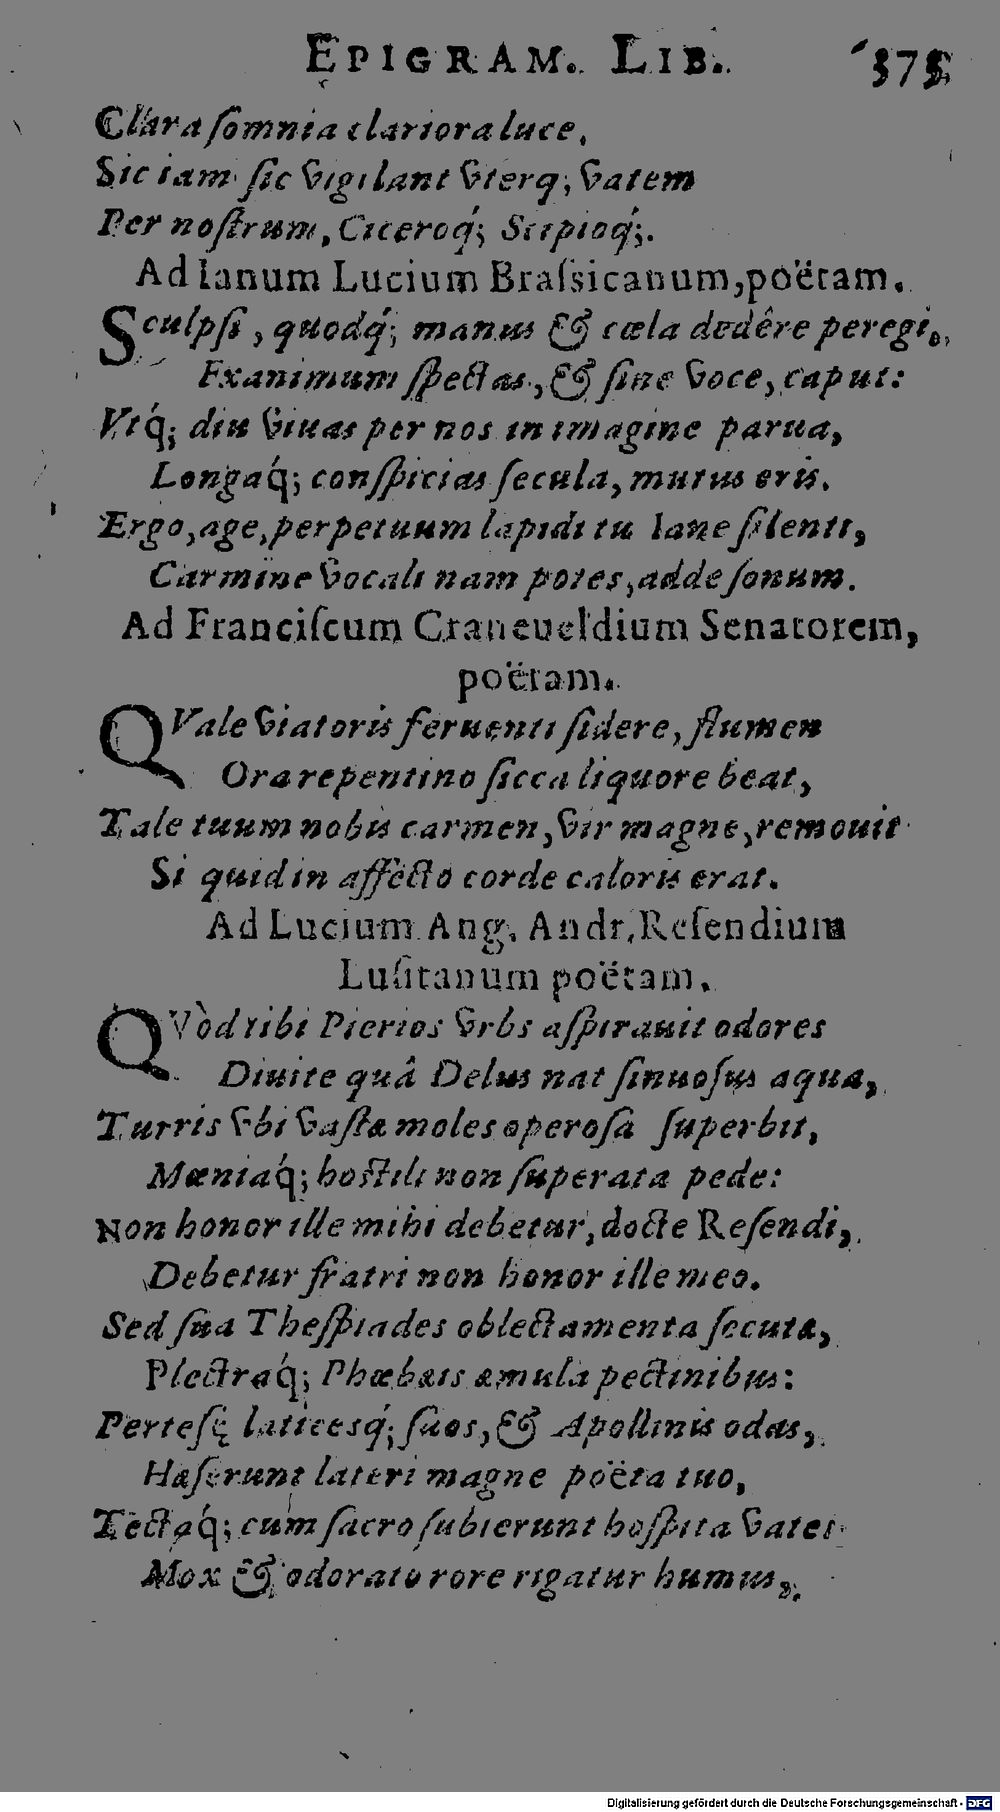 EPIGRAM. LIB. 375
Clara ſomnia clariora luce,
Sic iam ſic vigilant vterq; vatem
Per noſtrum, Ciceroq́; Scipioq́;.
Ad Ianum Lucium Braſsicanum, poëtam.
Sculpſi, quodq́; manus & cæla dedêre peregi,
Exanimum ſpectas, & ſine voce, caput:
Vtq́; diu viuas per nos in imagine parua,
Longaq́; conſpicias ſecula, mutus eris.
Ergo, age, perpetuum lapidi tu Iane ſilenti,
Carmine vocali nam potes, adde ſonum.
Ad Franciſcum Craneueldium Senatorem,
poëtam.
QVale viatoris feruenti ſidere, flumen
Ora repentino ſicca liquore beat,
Tale tuum nobis carmen, vir magne, remouit
Si quid in affecto corde caloris erat.
Ad Lucium Ang. Andr. Reſendium
Luſitanum poëtam.
QVòd tibi Pierios vrbs aſpirauit odores
Diuite quâ Delus nat ſinuoſus aqua,
Turris vbi vaſtæ moles operoſa ſuperbit,
Mœniaq́; hoſtili non ſuperata pede:
Non honor ille mihi debetur, docte Reſendi,
Debetur fratri non honor ille meo.
Sed ſua Theſpiades oblectamenta ſecutæ,
Plectraq́; Phœbæis æmula pectinibus:
Perteſę laticesq́; ſuos, & Apollinis odas,
Hæſerunt lateri magne poëta tuo,
Tectaq́; cum ſacro ſubierunt hoſpita vate:
Mox & odorato rore rigatur humus,
Digitalisierung gefördert durch die Deutsche Forschungsgemeinschaft - DFG